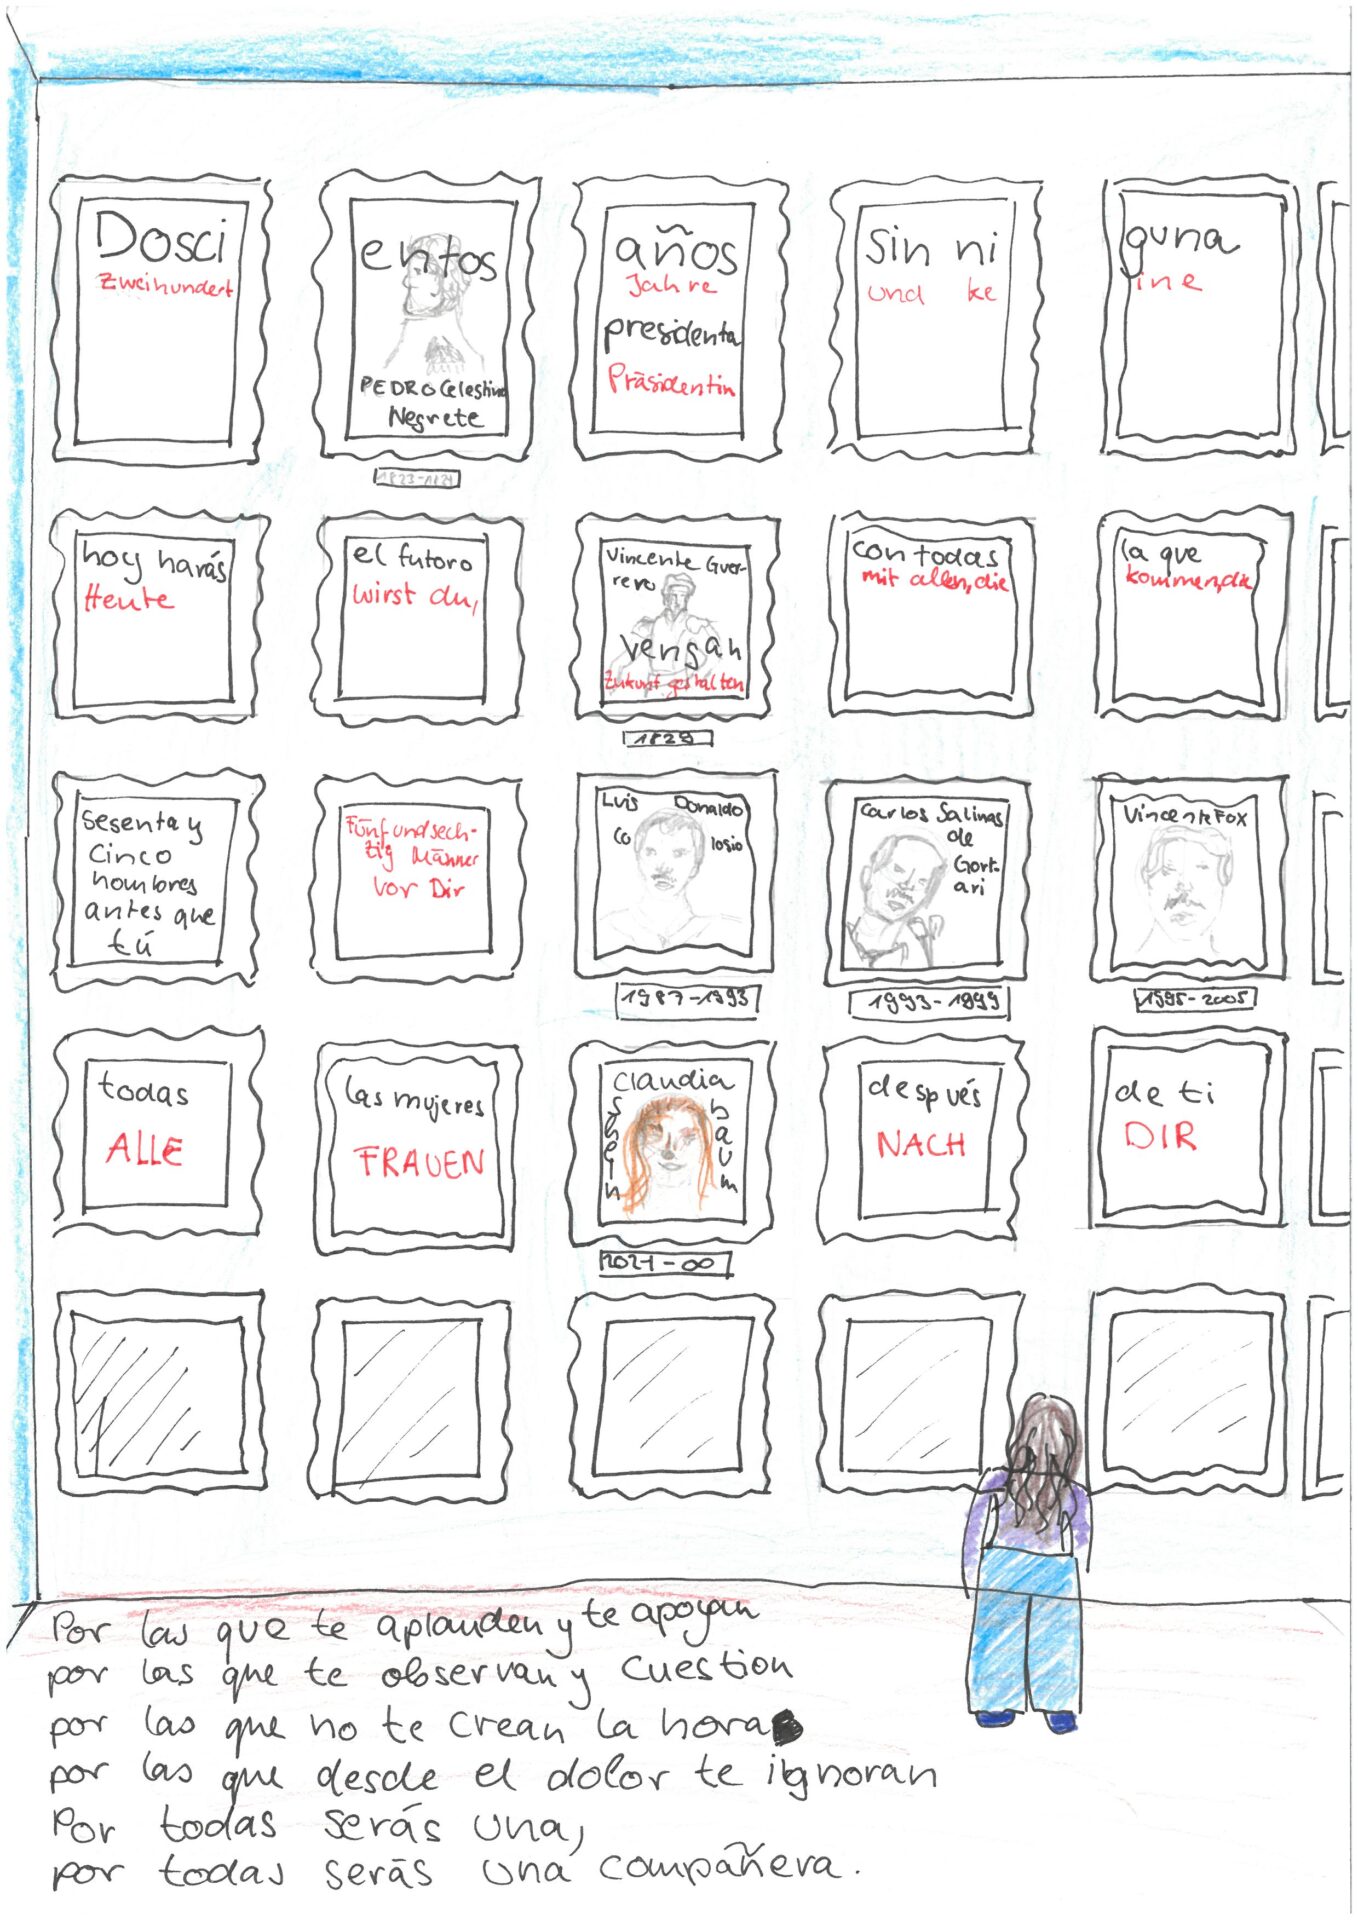 Dosci
Zweihundert
entos
PEDRO Celestino
Negrete
1823-1824
años
Jahre
presidenta
Präsidentin
sin ni
und ke
guna
ine
hoy harás
Heute
el futoro
wirst du,
Vincente Guer-
rero
vengan
Zukunft gestalten
1829
con todas
mit allen, die
la que
kommen, die
Sesenta y
cinco
hombres
antes que
tú
Fünfundsech-
zig Männer
vor Dir
Luis Donaldo
Co losio
1987-1993
Carlos Salinas
de
Gort-
ari
1993-1999
Vincente Fox
1995-2005
todas
ALLE
las mujeres
FRAUEN
Claudia
Schein
baum
2021-00
después
NACH
de ti
DIR
Por las que te aplauden y te apoyan
por las que te observan y cuestion
por las que no te crean la hora
por las que desde el dolor te ignoran
Por todas serás una,
por todas serás una compañera.